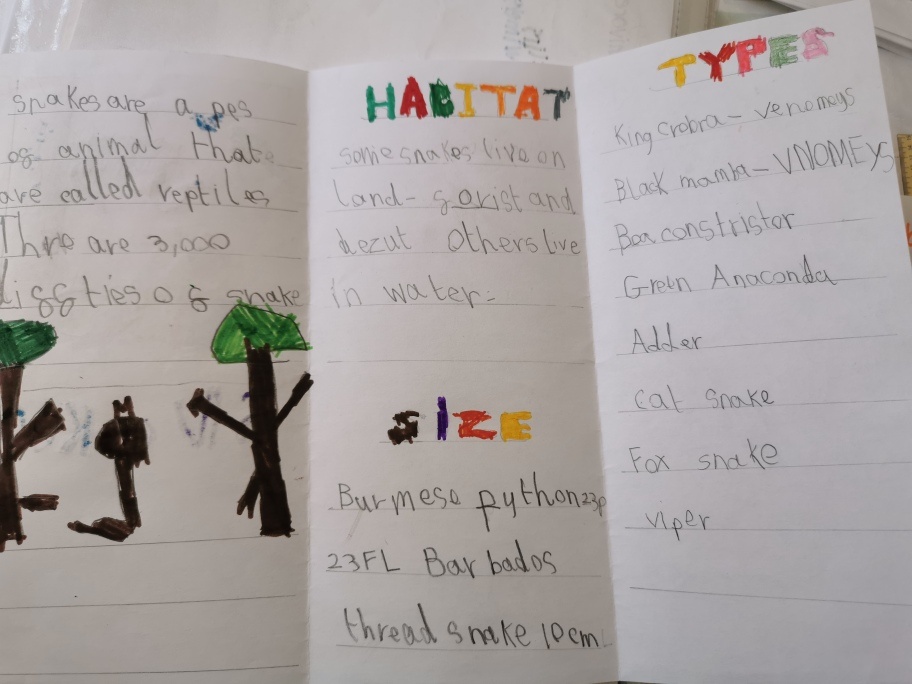 snakes are a pes
of animal thate
are called reptiles
Thrie are 3,000
Liffties of snake
HABITAT
some snakes live on
land- forist and
dezut Others live
in water.
SIZE
Burmese python 23p
23FL Barbados
thread snake 10cm
TYPES
King Crobra - Venomoys
Black mamba - VNOMEYS
Boa constristor
Green Anaconda
Adder
cat snake
Fox snake
viper